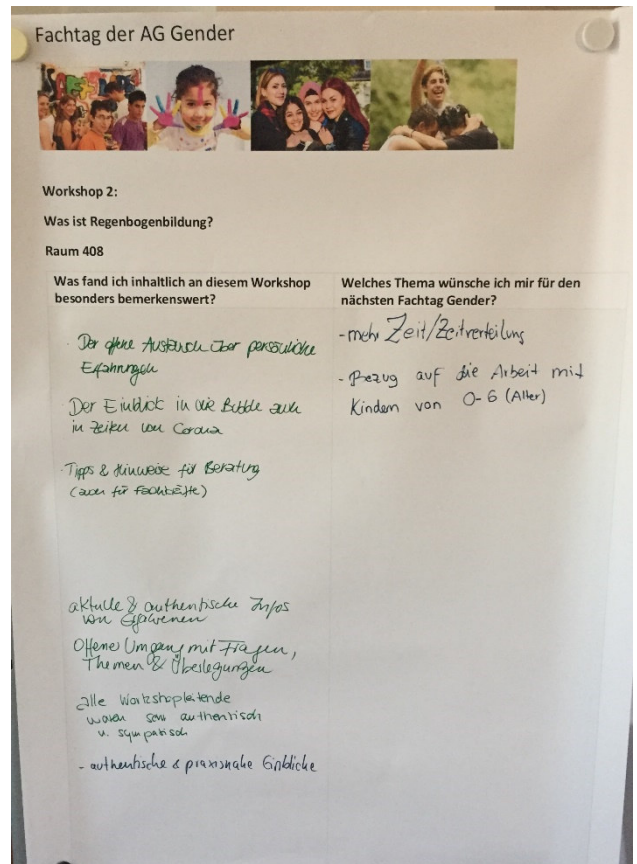 Fachtag der AG Gender
Workshop 2:
Was ist Regenbogenbildung?
Raum 408
Was fand ich inhaltlich an diesem Workshop
besonders bemerkenswert?
· Der offene Austausch über persönliche
Erfahrungen
Der Einblick in die Bubble auch
in Zeiten von Corona
· Tipps & Hinweise für Beratung
(auch für Fachkräfte)
aktuelle & authentische Infos
von Erfahrenen
Offener Umgang mit Fragen,
Themen & Überlegungen
alle Workshopleitende
waren sehr authentisch
u. sympatisch
- authentische & praxisnahe Einblicke
Welches Thema wünsche ich mir für den
nächsten Fachtag Gender?
- mehr Zeit/Zeitverteilung
- Bezug auf die Arbeit mit
Kindern von 0-6 (Alter)